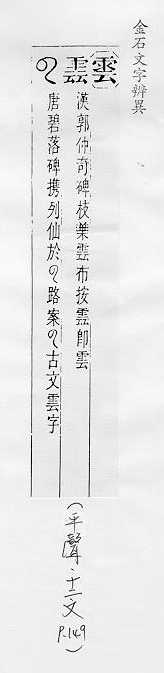 金石文字辨異
雲
漢郭仲奇碑枝葉雲布按雲卽雲
唐碧落碑攜列仙於の路案の古文雲字
(平聲·十二文 P.149)